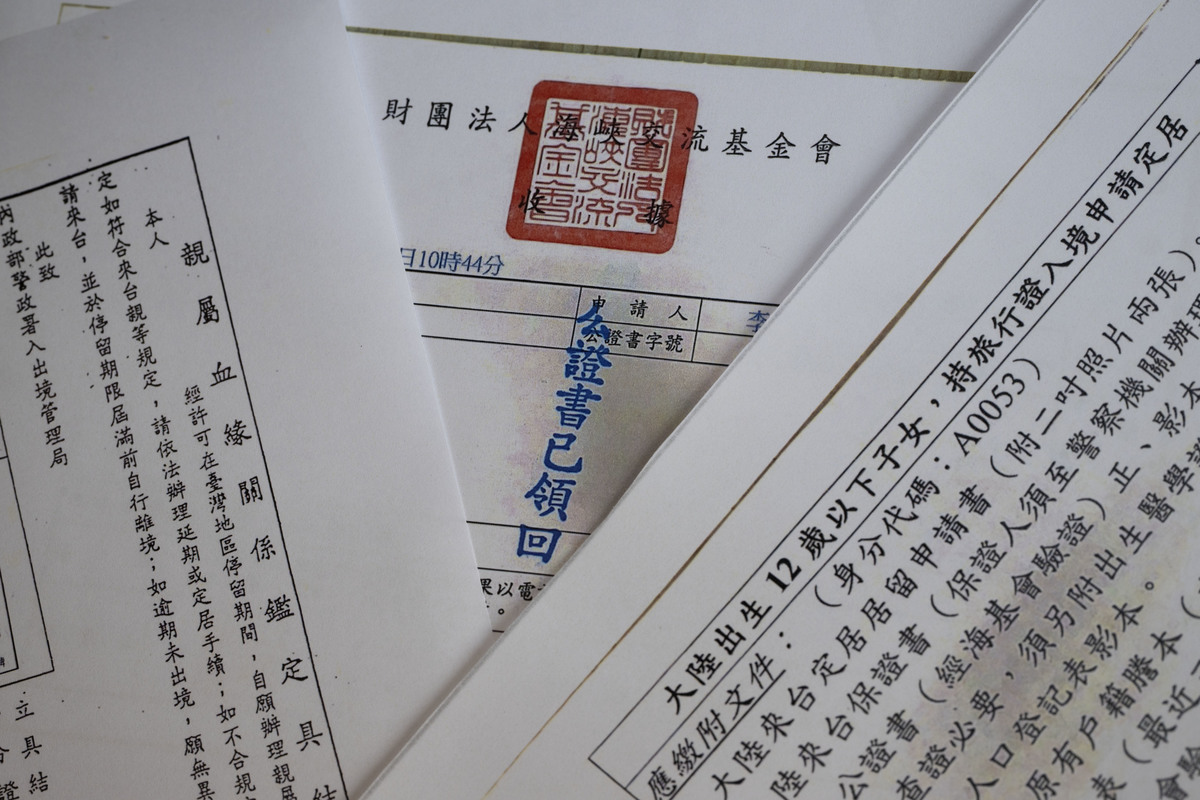 財團法人海峽交流基金會
收據
財團法人海峽交流基金會
日10時44分
申請人
李
公證書字號
公證書已領回
果以電
親屬血緣關係鑑定具結
本人
經許可在臺灣地區停留期間，自願辦理親屬
定如符合來台親等規定，請依法辦理延期或定居手續；如不合規定
請來台，並於停留期限屆滿前自行離境；如逾期未出境，願無異
此致
內政部警政署入出境管理局
立具結
大陸出生12歲以下子女，持旅行證入境申請定居
（身分代碼：A0053）
應繳附文件：
大陸來台定居居留申請書（附二吋照片兩張）。
陸來台保證書（保證人須至警察機關辦理
公證書（經海基會驗證）正、影本
查證必要，須另附出生醫學證
人口登記表影本。
原有戶籍謄本（最近
表（
會驗